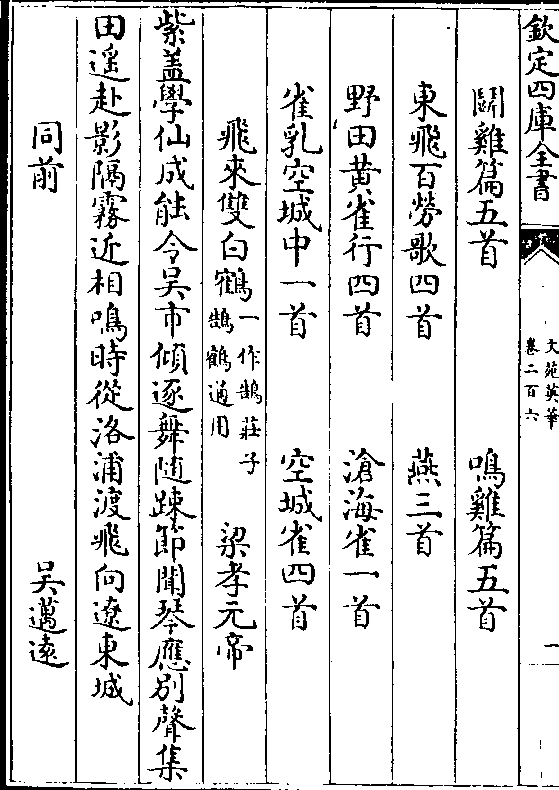 欽定四庫全書
文苑英華
卷二百六
一
鬭雞篇五首 鳴雞篇五首
東飛百勞歌四首 燕三首
野田黄雀行四首 滄海雀一首
雀乳空城中一首 空城雀四首
飛來雙白鶴一作鵠莊子鵠鶴通用 梁孝元帝
紫盖學仙成能令吳市傾逐舞随踈節聞琴應别聲集
田遥赴影隔霧近相鳴時從洛浦渡飛向遼東城
同前 吳邁逺